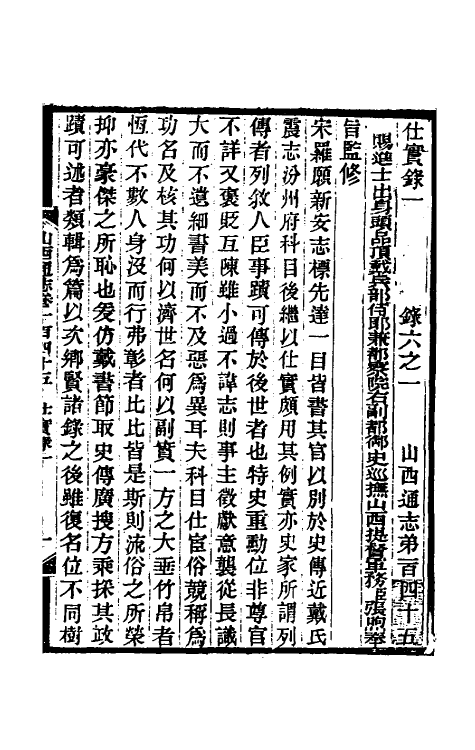 仕實錄一　錄六之一　山西通志第一百四十五
賜進士出身頭品頂戴兵部侍郎兼都察院右副都御史巡撫山西提督軍務臣張煦奉
旨監修
宋羅願新安志標先達一目皆書其官以別於史傳近戴氏
震志汾州府科目後繼以仕實頗用其例實亦史家所謂列
傳者列敘人臣事蹟可傳於後世者也特史重勳位非尊官
不詳又褒貶互陳雖小過不諱志則事主徵獻意襲從長議
大而不遺細書美而不及惡爲異耳夫科目仕宦俗競稱爲
功名及核其功何以濟世名何以副實一方之大垂竹帛者
恆代不數人身沒而行弗彰者比比皆是斯則流俗之所榮
抑亦豪傑之所恥也爰仿戴書節取史傳廣搜方乘採其政
蹟可述者類輯爲篇以次鄉賢諸錄之後雖復名位不同樹
山西通志卷一百四十五　仕實錄一　一